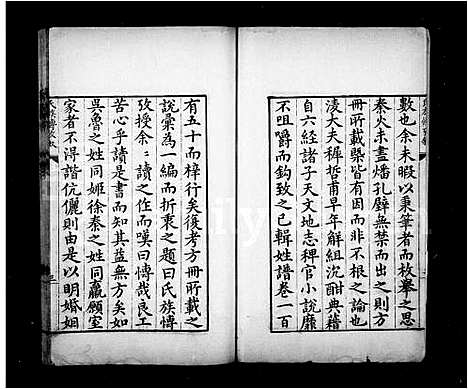 數也余未暇以秉筆者而枚舉之思
秦火未盡燔孔壁無禁而出之則方
冊所載槩皆有因而非不根之論也
淩大夫穉哲甫早年解組沉酣典籍
自六經諸子天文地志稗官小說靡
不咀嚼而鈎致之已輯姓譜卷一百
有五十而梓行矣復考方冊所載之
說彙為一編而折衷之題曰氏族博
攷授余余讀之作而嘆曰博哉良工
苦心乎讀是書而知其益無方矣如
吳魯之姓同姬徐秦之姓同嬴願室
家者不得諧伉儷則由是以明婚姻